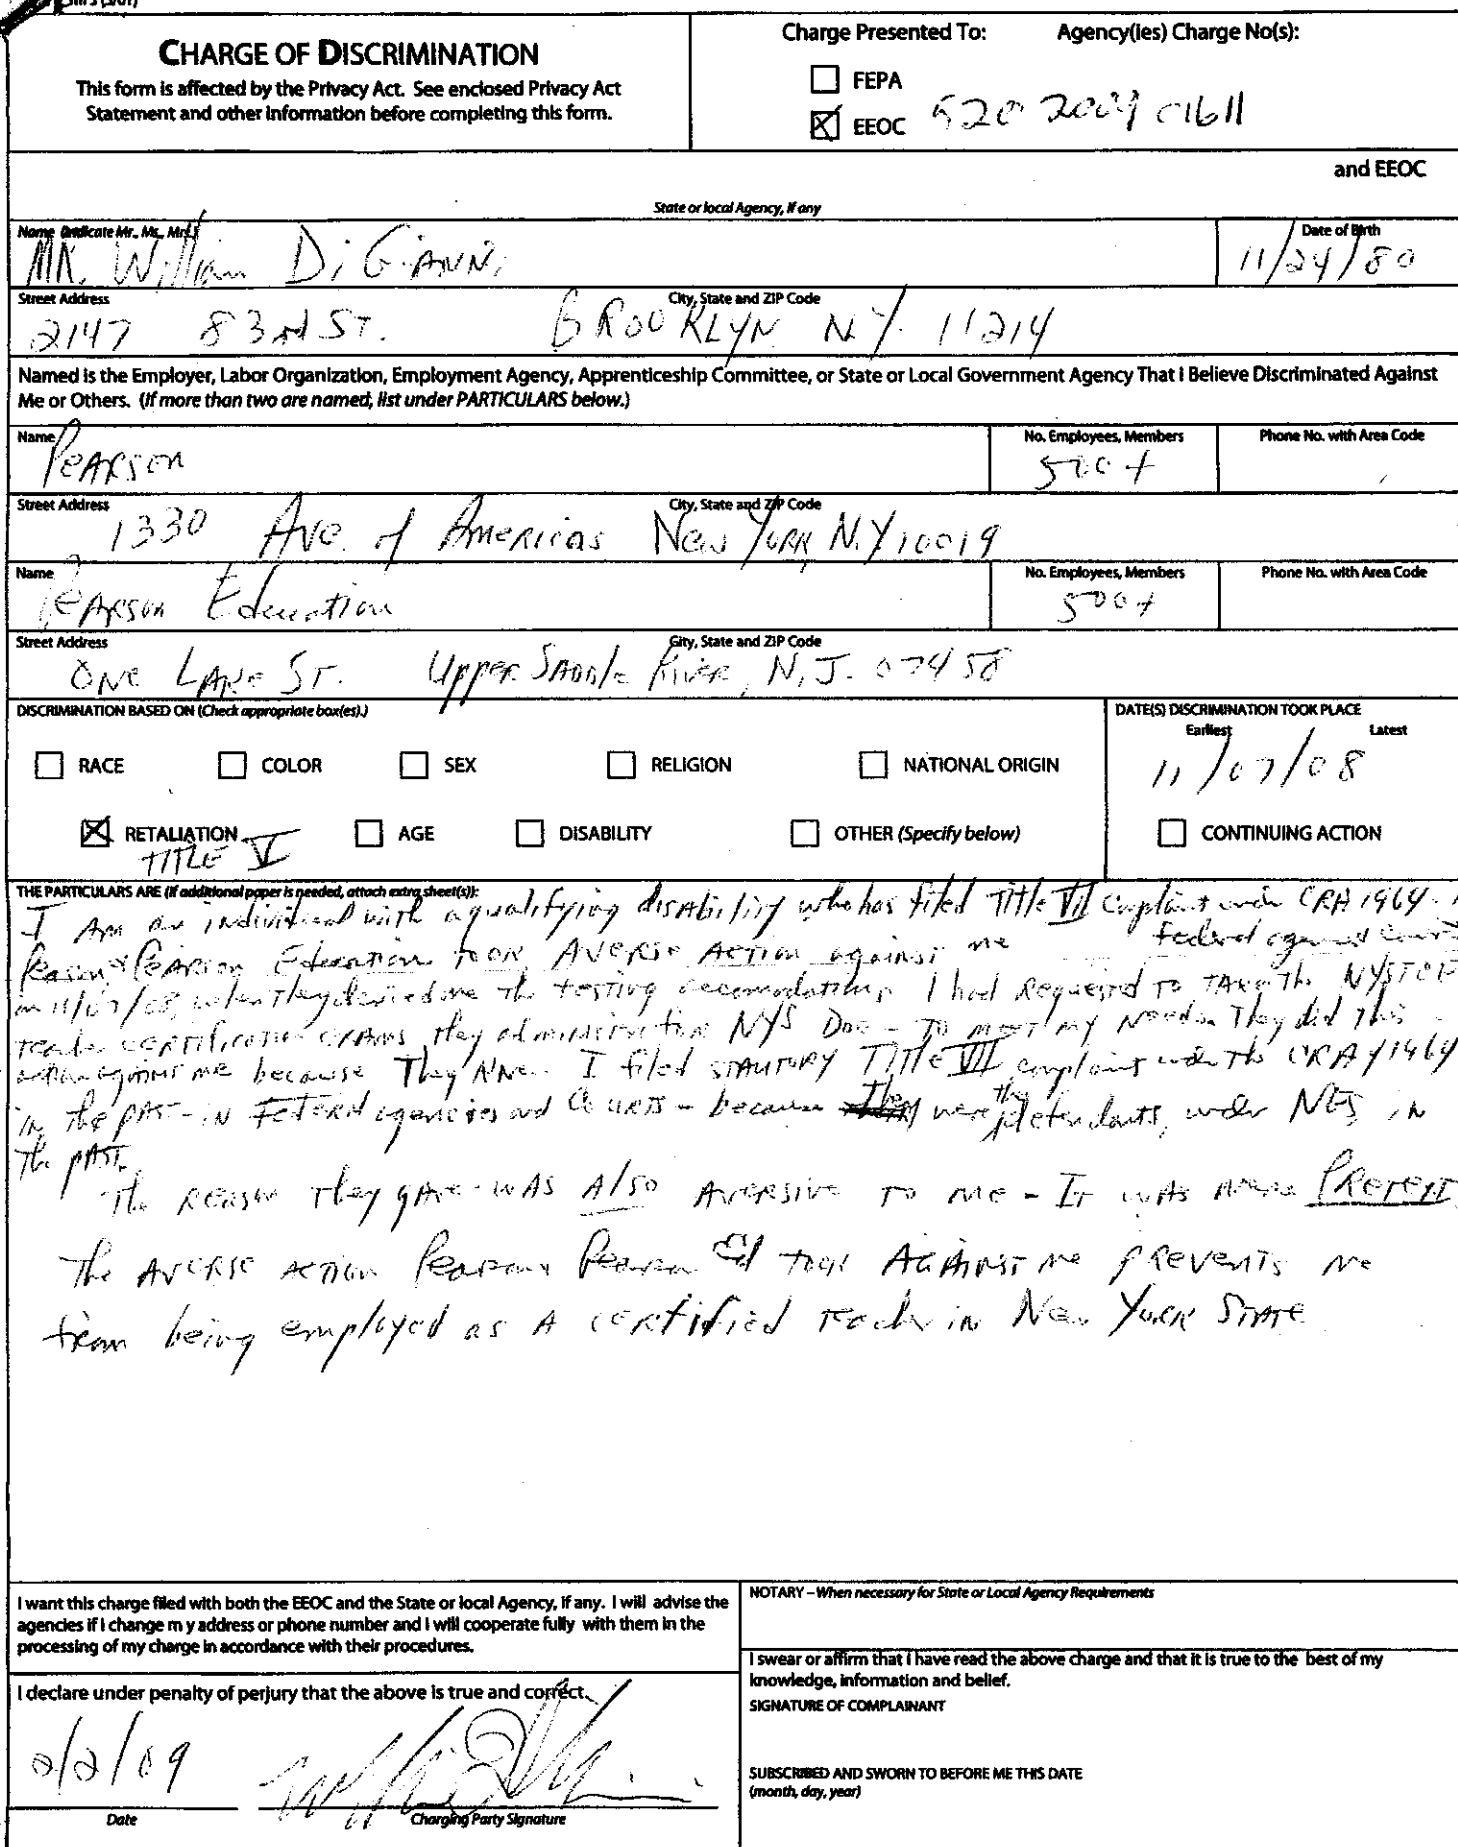 CHARGE OF DISCRIMINATION
This form is affected by the Privacy Act. See enclosed Privacy Act
Statement and other information before completing this form.
Charge Presented To: Agency(ies) Charge No(s):
FEPA
EEOC 520 2009 01611
and EEOC
State or local Agency, if any
Name (Indicate Mr., Ms., Mrs.)
MR. William DiGianni
Date of Birth
11/24/80
Street Address
City, State and ZIP Code
2147 83rd ST. BROOKLYN N.Y. 11214
Named is the Employer, Labor Organization, Employment Agency, Apprenticeship Committee, or State or Local Government Agency That I Believe Discriminated Against
Me or Others. (If more than two are named, list under PARTICULARS below.)
Name
Pearson
No. Employees, Members
500+
Phone No. with Area Code
Street Address
City, State and ZIP Code
1330 Ave. of Americas New York N.Y 10019
Name
Pearson Education
No. Employees, Members
500+
Phone No. with Area Code
Street Address
City, State and ZIP Code
ONE LAKE ST. Upper Saddle River, N.J. 07458
DISCRIMINATION BASED ON (Check appropriate box(es).)
DATE(S) DISCRIMINATION TOOK PLACE
Earliest Latest
11/07/08
RACE COLOR SEX RELIGION NATIONAL ORIGIN
RETALIATION AGE DISABILITY OTHER (Specify below) CONTINUING ACTION
TITLE V
THE PARTICULARS ARE (If additional paper is needed, attach extra sheet(s)):
I Am an individual with a qualifying disability who has filed Title VII complaint under CRA 1964.
federal
Pearson Education took AVERSE Action against me
on 11/07/08, when they denied me the testing accomodations I had Requested to TAKE The NYSTCE
teacher certification exams they administer for NYS DOE - TO meet my Needs. They did this
action against me because They knew I filed STAUTORY Title VII complaint under the CRA of 1964
in the past - in Federal agencies and Courts - because they were defendants, under NES in
The past.
The Reason they gave was Also aversive to me - It was mere Pretext
The Averse action Pearson & Pearson Ed took Against me prevents me
from being employed as A certified teacher in New York State
I want this charge filed with both the EEOC and the State or local Agency, if any. I will advise the
agencies if I change m y address or phone number and I will cooperate fully with them in the
processing of my charge in accordance with their procedures.
I declare under penalty of perjury that the above is true and correct.
2/2/09
Date
Charging Party Signature
NOTARY – When necessary for State or Local Agency Requirements
I swear or affirm that I have read the above charge and that it is true to the best of my
knowledge, information and belief.
SIGNATURE OF COMPLAINANT
SUBSCRIBED AND SWORN TO BEFORE ME THIS DATE
(month, day, year)